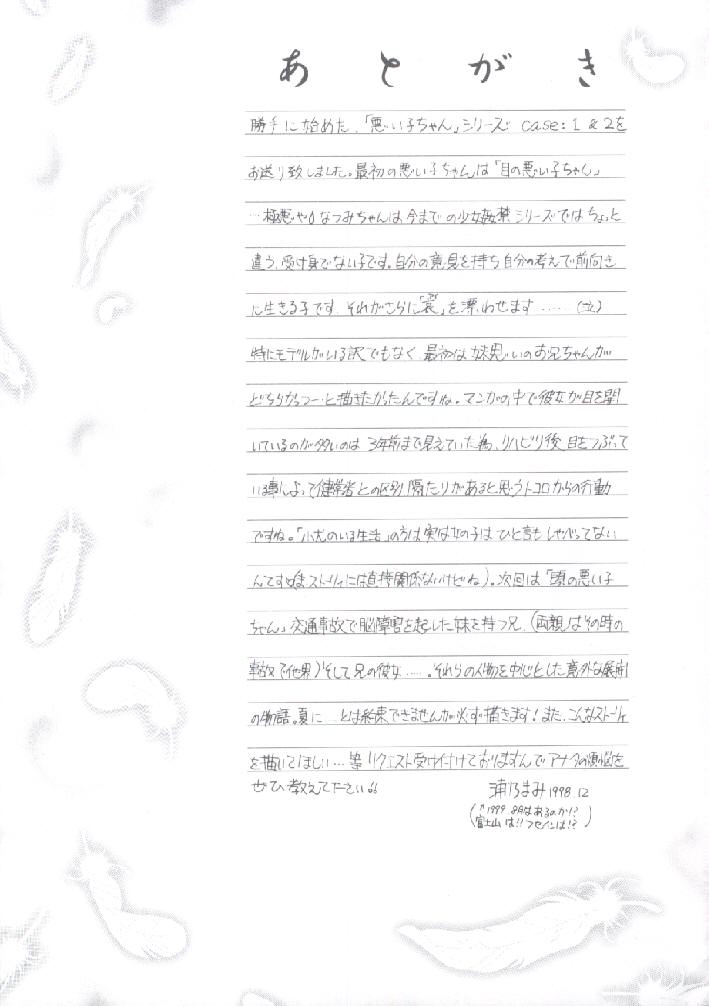 あとがき
勝手に始めた、「悪い子ちゃん」シリーズ case:1 & 2を
お送り致しました。最初の悪い子ちゃんは「目の悪い子ちゃん」
なつみちゃんは今までの少女姦禁シリーズではちょっと
違う、受け身でない子です。自分の意見を持ち自分の考えで前向き
に生きる子です。それがさらに「哀」を漂わせます……(泣)
特にモデルがいる訳でもなく 最初は妹思いのお兄ちゃんが
と描きたかったんですね。マンガの中で彼女が目を開
いているのが多いのは 3年前まで見えていた為、リハビリ後 目をつぶって
いる事によって健常者との区別 隔たりがあると思うトコロからの行動
ですね。「小犬のいる生活」の方は実は女の子は ひと言も しゃべってない
んです(ストーリィには直接関係ないけどね)。次回は「頭の悪い子
ちゃん」交通事故で脳障害を起した妹を持つ兄、(両親はその時の
事故で他界)そして兄の彼女……。それらの人物を中心とした意外な展開
の物語。夏に…とは約束できませんが必ず描きます!また、こんなストーリィ
を描いてほしい…等 リクエスト受け付けておりますんで アナタの
ぜひ教えて下さい
浦乃まみ 1998.12
(↑1999 8月はあるのか!?
富士山は!! フセインは!?)